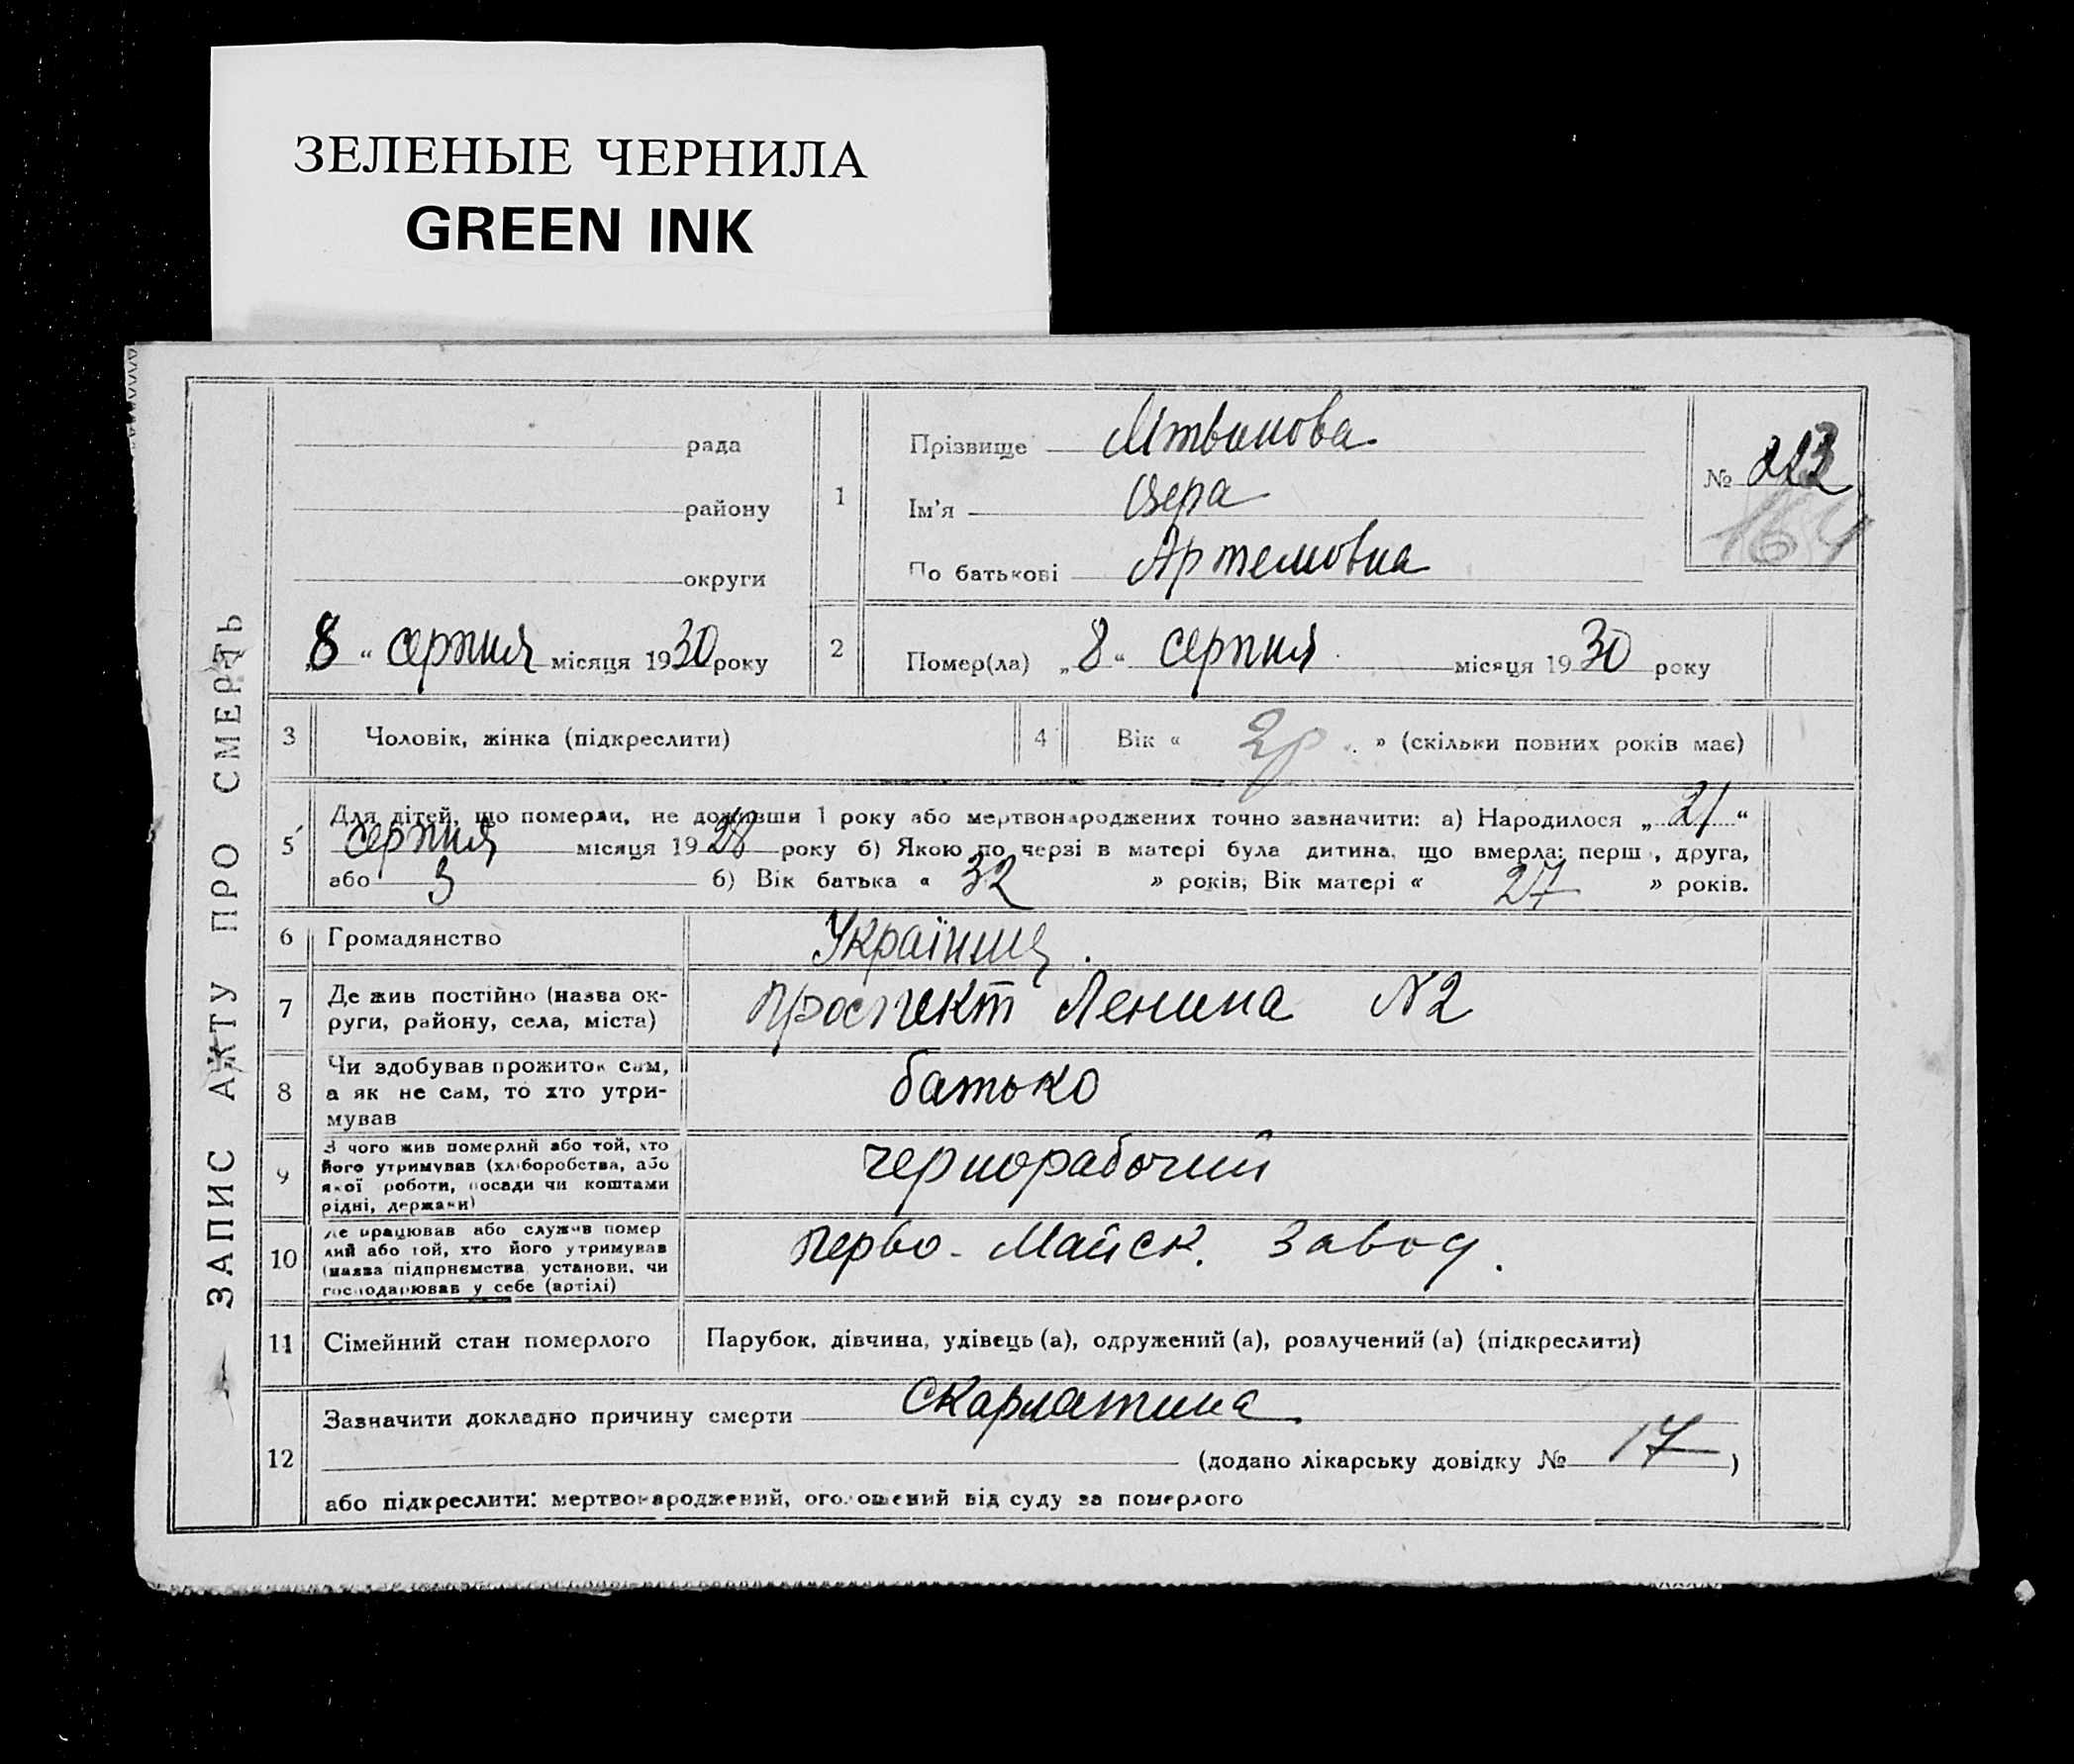 ЗЕЛЕНЫЕ ЧЕРНИЛА
GREEN INK
ЗАПИС АКТУ ПРО СМЕРТЬ
рада
району
округи
„8“ серпня місяця 1930 року
1
Прізвище
Ім'я Вера
По батькові Артемовна
№ 223
164
2
Помер(ла) „8“ серпня місяця 1930 року
3 Чоловік, жінка (підкреслити)
4 Вік « 2р. » (скільки повних років має)
5 Для дітей, що померли, не доживши 1 року або мертвонароджених точно зазначити: а) Народилося „21“
серпня місяця 1928 року б) Якою по черзі в матері була дитина, що вмерла: перш , друга,
або 3 б) Вік батька « 32 » років; Вік матері « 27 » років.
6 Громадянство Українц.
7 Де жив постійно (назва ок-
руги, району, села, міста) проспект Ленина N2
8 Чи здобував прожиток сам,
а як не сам, то хто утри-
мував батько
9 З чого жив померлий або той, хто
його утримував (хліборобства, або
якої роботи, посади чи коштами
рідні, держави) чернорабочий
10 Де працював або служив помер
лий або той, хто його утримував
(назва підприємства установи, чи
господарював у себе (артілі) Перво-Майск. Завод.
11 Сімейний стан померлого Парубок, дівчина, удівець (а), одружений (а), розлучений (а) (підкреслити)
12 Зазначити докладно причину смерти скарлатина
(додано лікарську довідку № 17)
або підкреслити: мертвонароджений, оголошений від суду за померлого